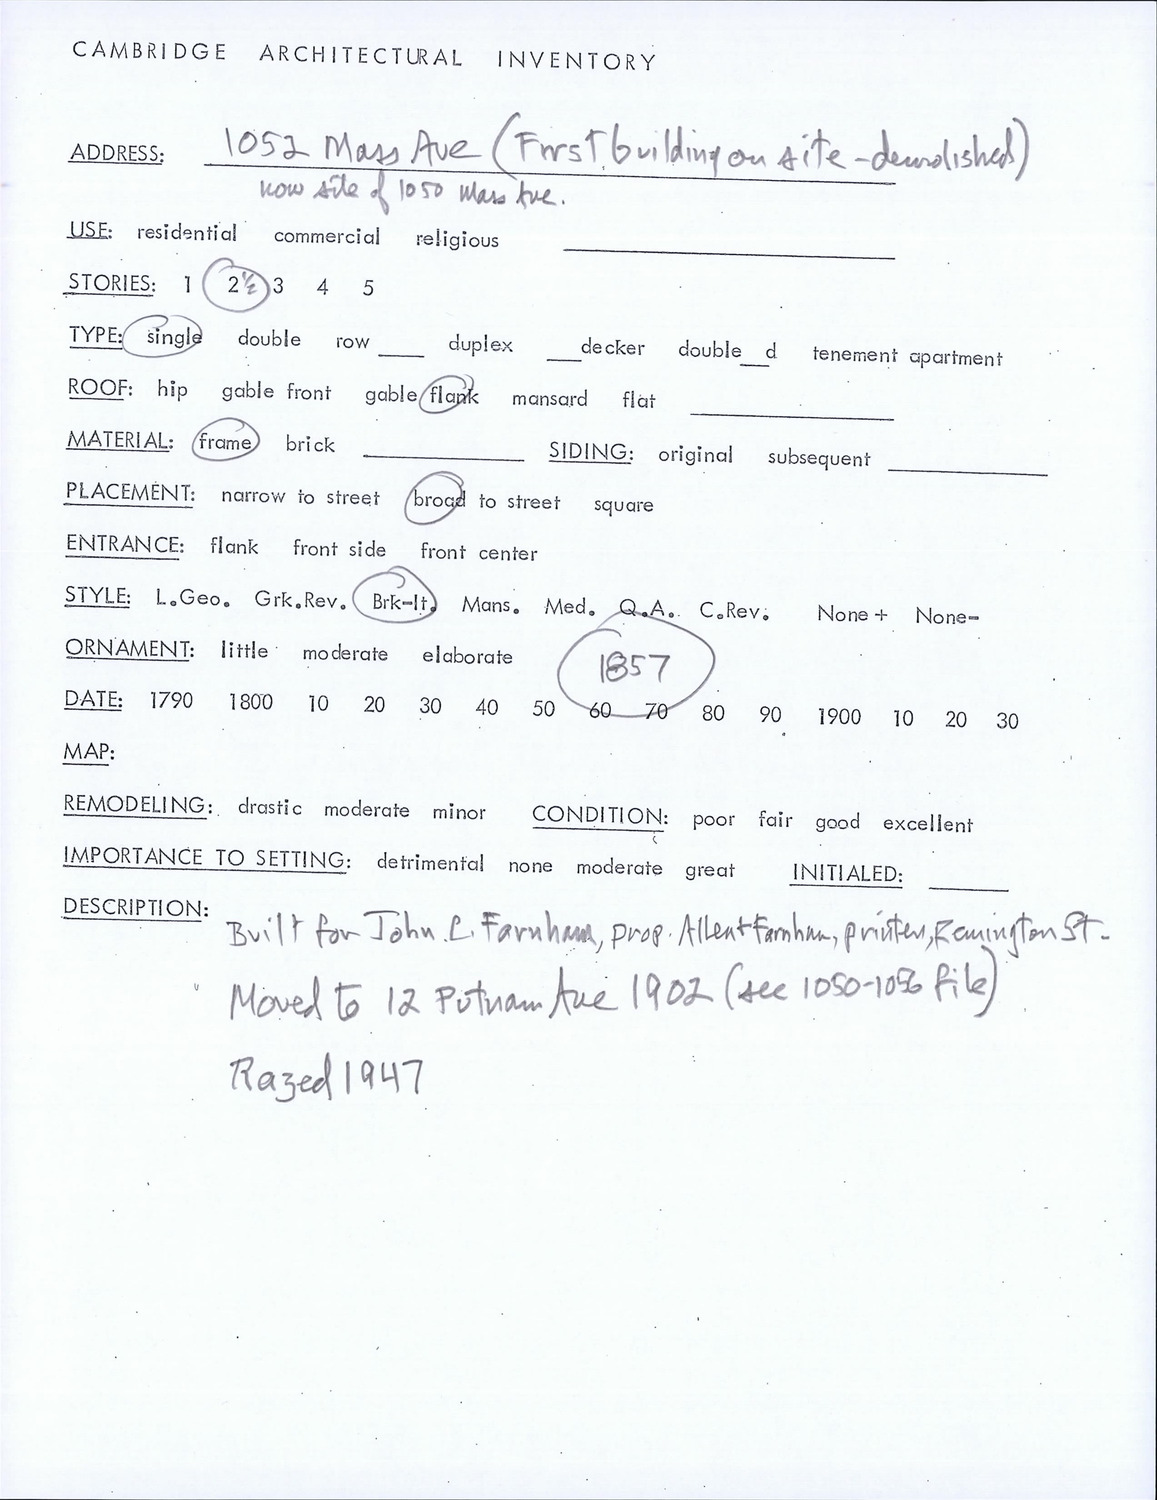 CAMBRIDGE ARCHITECTURAL INVENTORY
ADDRESS: 1052 Mass Ave (First building on site - demolished)
now site of 1050 Mass Ave.
USE: residential commercial religious
STORIES: 1 2½ 3 4 5
TYPE: single double row ____ duplex ___decker double___d tenement apartment
ROOF: hip gable front gable flank mansard flat
MATERIAL: frame brick ____ SIDING: original subsequent ____
PLACEMENT: narrow to street broad to street square
ENTRANCE: flank front side front center
STYLE: L.Geo. Grk.Rev. Brk-It. Mans. Med. Q.A. C.Rev. None+ None-
ORNAMENT: little moderate elaborate 1857
DATE: 1790 1800 10 20 30 40 50 60 70 80 90 1900 10 20 30
MAP:
REMODELING: drastic moderate minor CONDITION: poor fair good excellent
IMPORTANCE TO SETTING: detrimental none moderate great INITIALED: ____
DESCRIPTION:
Built for John L. Farnham, prop. Allen + Farnham, printers, Remington St.
Moved to 12 Putnam Ave 1902 (see 1050-1056 file)
Razed 1947